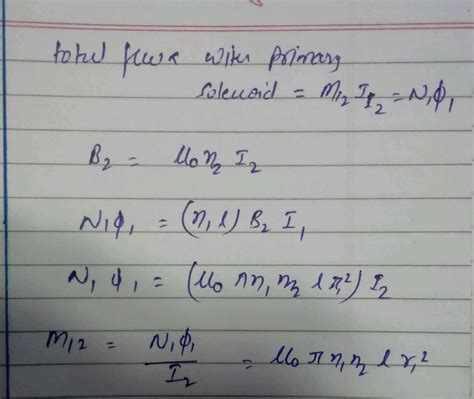 total flux with primary
solenoid = M₁₂ I₂ = N₁ϕ₁
B₂ = μ₀ n₂ I₂
N₁ϕ₁ = (n₁ l) B₂ I₁
N₁ ϕ₁ = (μ₀ π n₁ n₂ l r₁²) I₂
M₁₂ = N₁ϕ₁ / I₂ = μ₀ π n₁ n₂ l r₁²